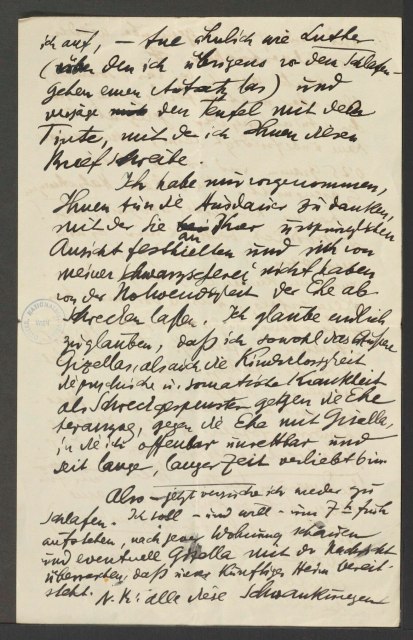 ich auf, – tue ähnlich wie Luther
(über den ich übrigens vor dem Schlafen-
gehen einen Aufsatz las) und
verjage den Teufel mit der
Tinte, mit der ich Ihnen diesen
Brief schreibe.
Ich habe mir vorgenommen,
Ihnen für die Ausdauer zu danken,
mit der Sie an Ihrer ursprünglichen
Ansicht festhielten und sich von
meiner Schwarzseherei nicht haben
von der Notwendigkeit der Ehe ab-
schrecken lassen. Ich glaube endlich
zu glauben, daß ich sowohl das
Gizellas, als auch die Kinderlosigkeit
die psychische u. somatische Krankheit
als Schreckgespenster gegen die Ehe
heranzog, gegen die Ehe mit Gisella,
in die ich offenbar unrettbar und
seit lange, langer Zeit verliebt bin.
Also – jetzt versuche ich wieder zu
schlafen. Ich soll – und will – um 7h früh
aufstehen, nach jener Wohnung schauen
und eventuell Gisella mit der Nachricht
überraschen, daß unser künftiges Heim bereit-
steht.
N.B.: alle diese Schwankungen